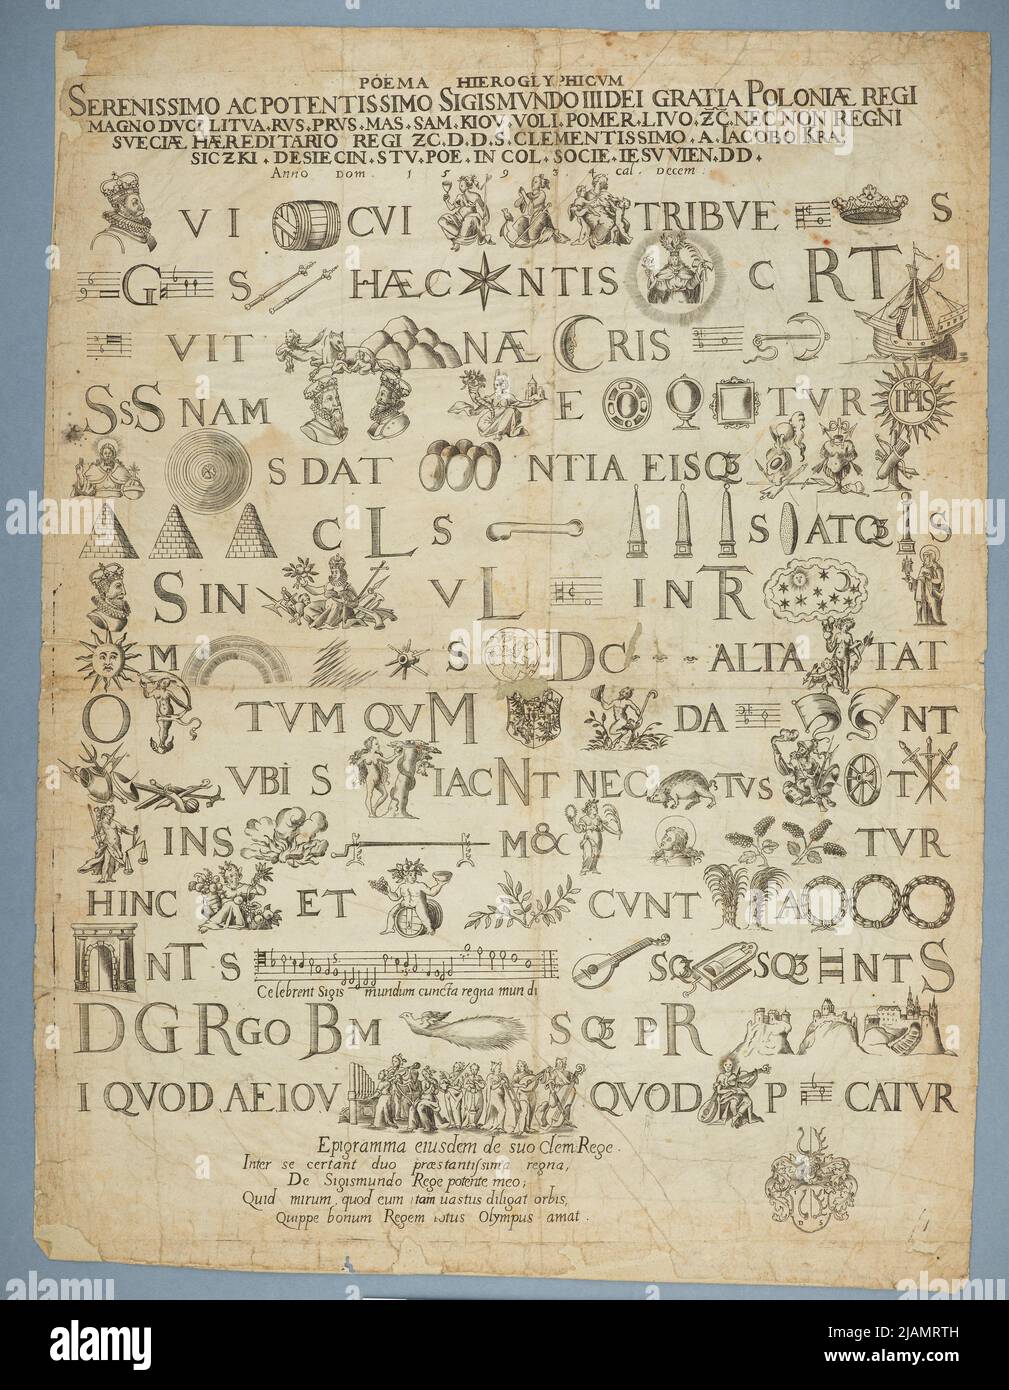 POEMA HIEROGLYPHICVM
SERENISSIMO AC POTENTISSIMO SIGISMVNDO III DEI GRATIA POLONIÆ REGI
MAGNO DVCI LITVA. RVS. PRVS. MAS. SAM. KIOV. VOLI. POMER. LIVO. ZC. NEC NON REGNI
SVECIÆ HÆREDITARIO REGI ZC. D. D. S. CLEMENTISSIMO. A. IACOBO KRA,
SICZKI. DESIECIN. STV. POE. IN COL. SOCIE. IESV VIEN. DD.
Anno Dom. 1593. cal. Decem.
VI CVI TRIBVE S
G S HÆC NTIS C RT
VIT NÆ CRIS
SSS NAM E TVR IHS
S DAT NTIA EISQ3
C L S S ATQ3 S
S IN V L I N TR
M S DC ALTA TAT
O TVM QVM DA NT
VBI S IACNT NEC TVS T
INS M& TVR
HINC ET CVNT A
NT S SQ3 SQ3 NTS
Celebrent Sigis mundum cuncta regna mundi
DG RGO BM S Q3 PR
I QVOD AEIOV QVOD P CATVR
Epigramma eiusdem de suo Clem: Rege.
Inter se certant duo præstantissima regna,
De Sigismundo Rege potente meo;
Quid mirum, quod eum tam uastus diligat orbis,
Quippe bonum Regem totus Olympus amat.
D S
alamy
Image ID: 2JAMRTH
www.alamy.com